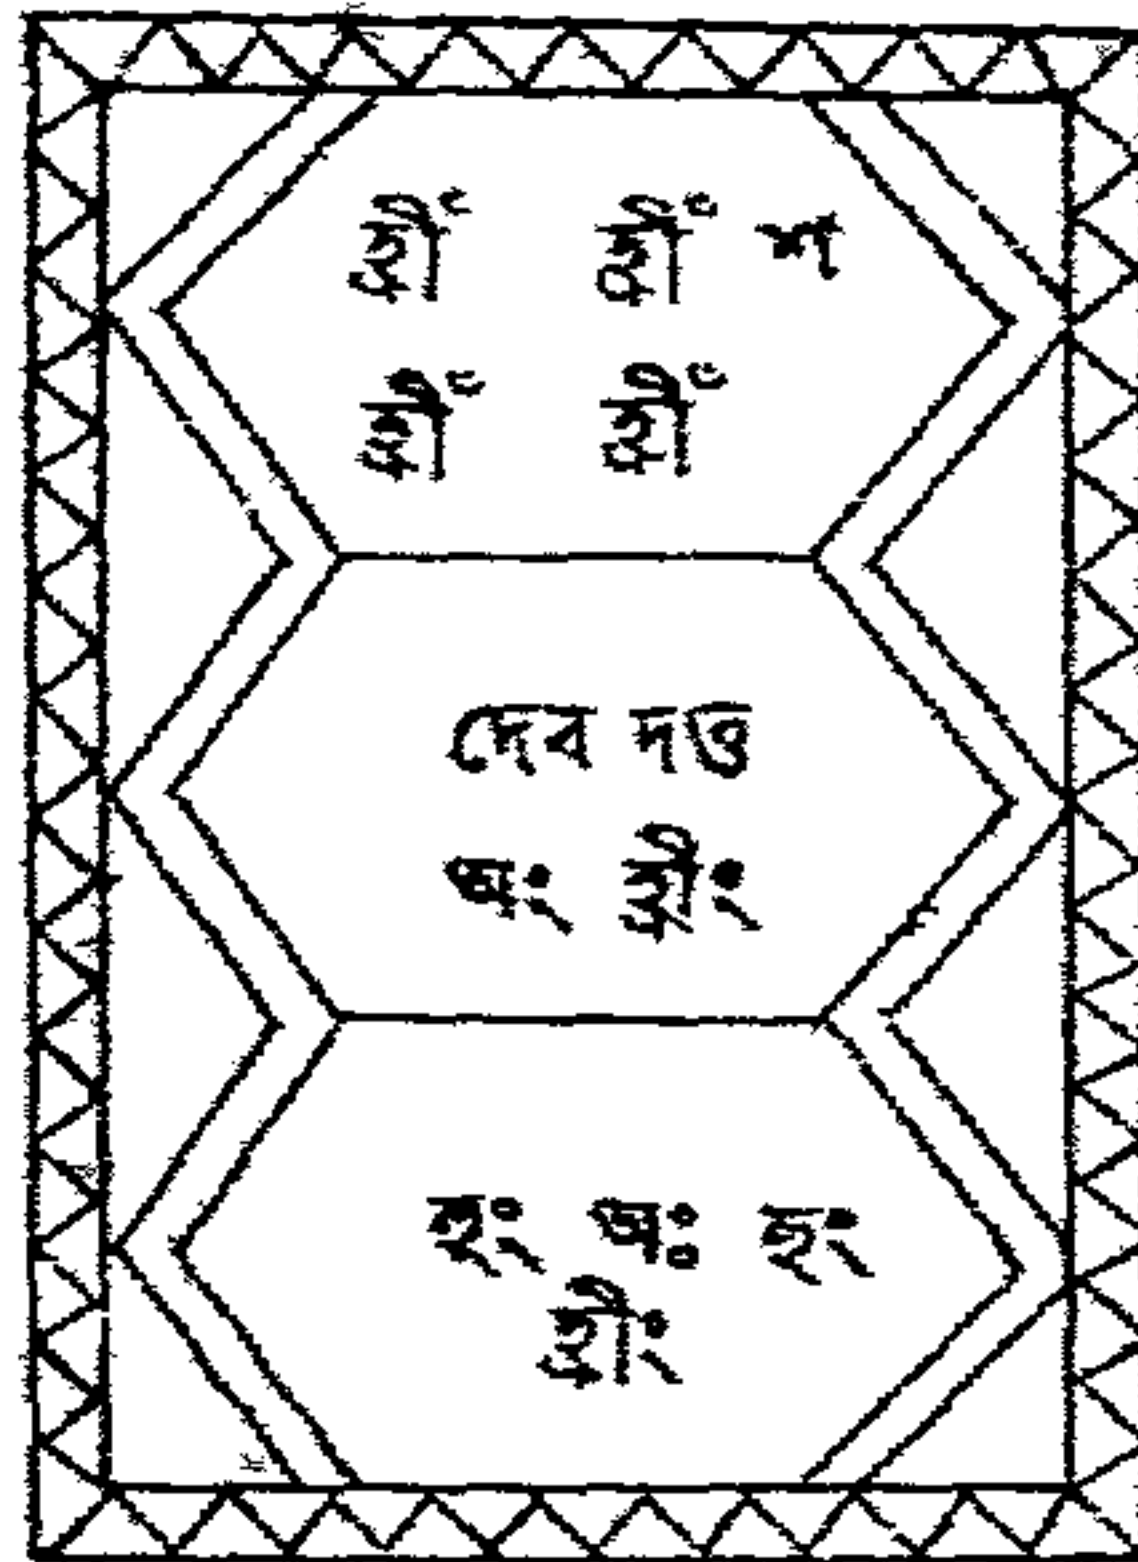 হ্রীং হ্রীং শ
হ্রীং হ্রীং
দেব দত্ত
হ্রীং
হুং অঃ হুং
হ্রীং